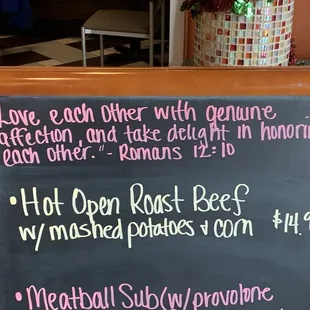 Love each other with genuine
affection, and take delight in honori
each other." - Romans 12:10
• Hot Open Roast Beef
w/ mashed potatoes & corn $14.9
• Meatball Sub (w/ provolone